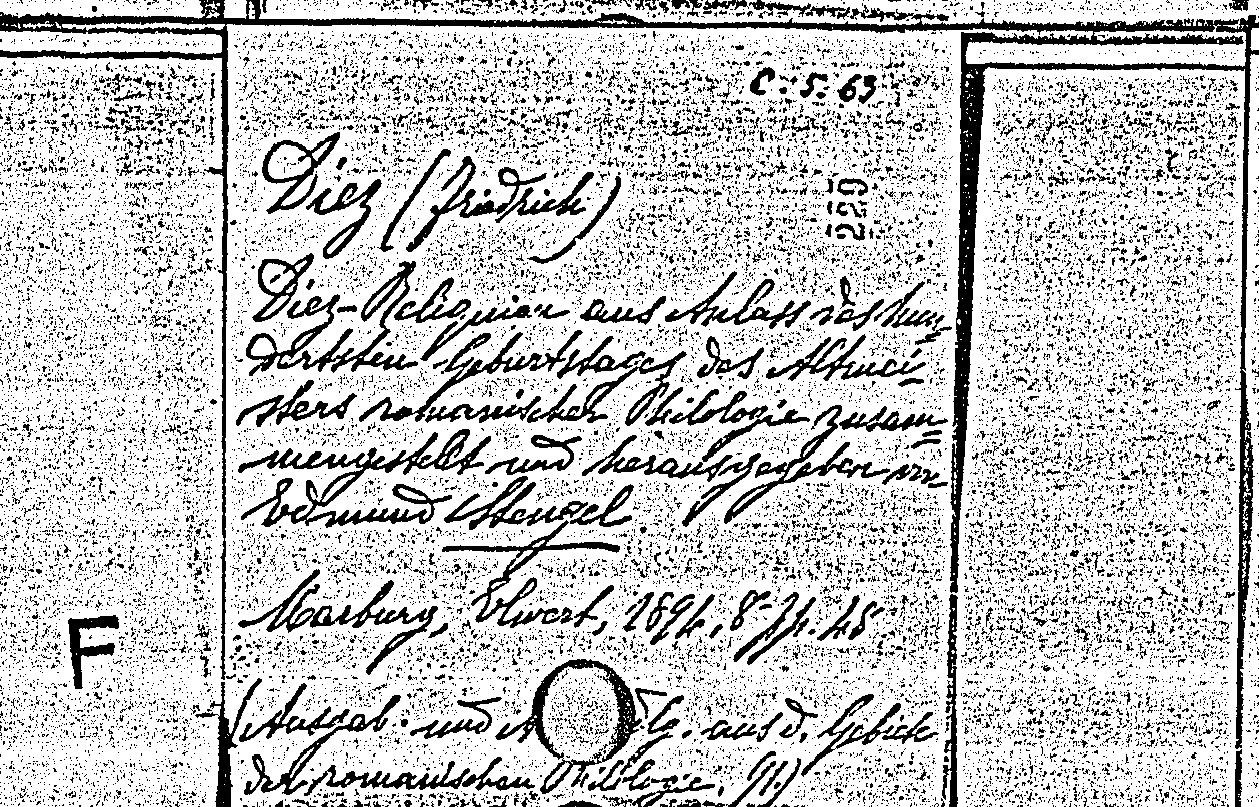 C. 5. 63
Diez (Friedrich)
229
Diez-Reliquien aus Anlass des hun=
dertsten Geburtstages des Altmei=
sters romanischer Philologie zusam=
mengestellt und herausgegeben von
Edmund Stengel.
Marburg, Elwert, 1894, 8° pp. 48
F
(Ausgab. und A lg. aus d. Gebiete
der romanischen Philologie. 91.)